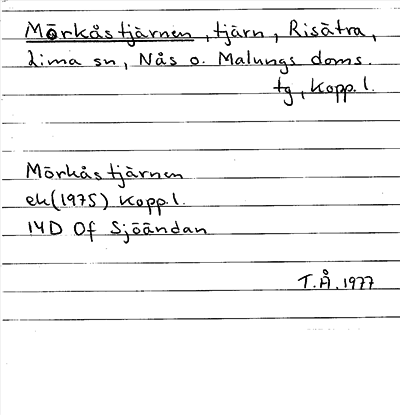 Mörkåstjärnen, tjärn, Risätra,
Lima sn, Nås o. Malungs doms.
tg, Kopp. l.
Mörkåstjärnen
ek(1975) Kopp. l.
14D 0f Sjöändan
T.Å. 1977